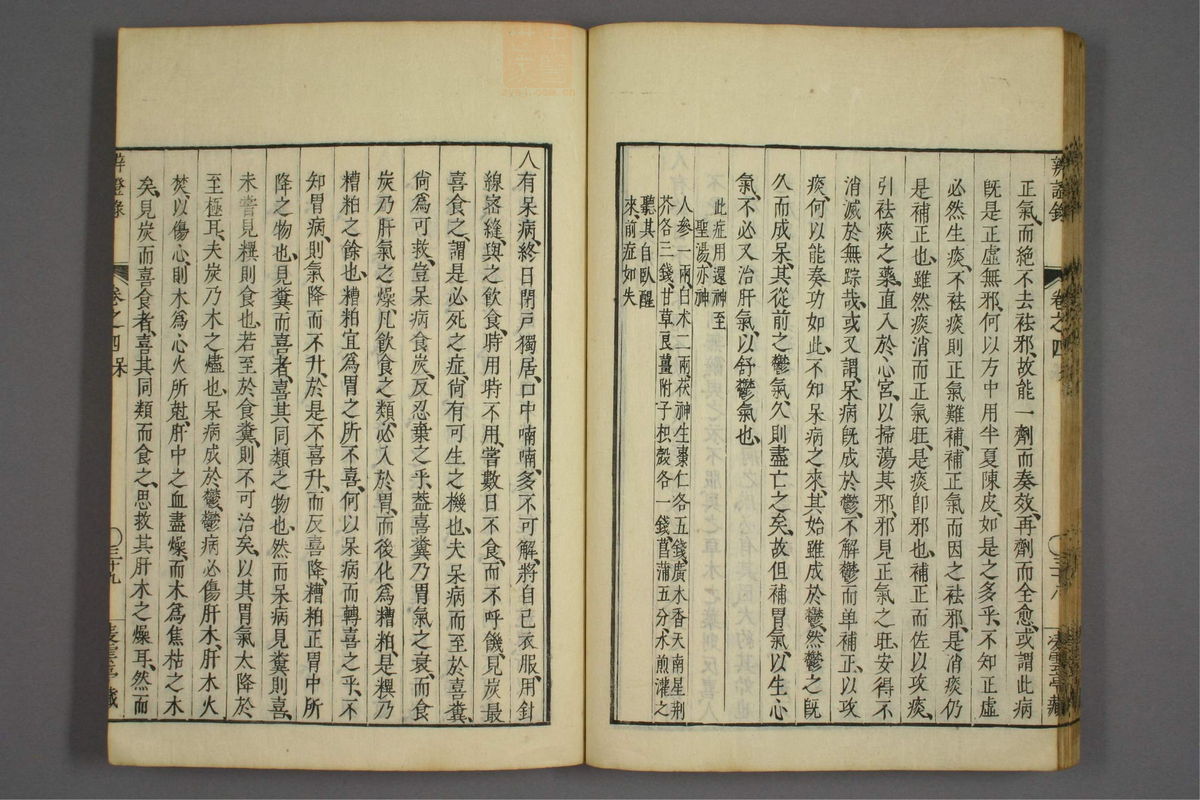 正氣、而絶不去袪邪、故能一劑而奏效、再劑而全愈、或謂此病
旣是正虚無邪、何以方中用半夏陳皮、如是之多乎、不知正虚
必然生痰、不袪痰則正氣難補、補正氣而因之袪邪、是消痰仍
是補正也、雖然痰消而正氣旺、是痰卽邪也、補正而佐以攻痰、
引袪痰之藥、直入於心宮、以掃蕩其邪、邪見正氣之旺、安得不
消滅於無踪哉、或又謂、呆病旣成於鬱、不解鬱而单補正、以攻
痰、何以能奏功如此、不知呆病之來、其始雖成於鬱、然鬱之旣
久而成呆、其從前之鬱氣、久則盡亡之矣、故但補胃氣、以生心
氣、不必又治肝氣、以舒鬱氣也、
此症用還神至
聖湯亦神
人參一兩、白术二兩、茯神生棗仁各五錢、廣木香天南星荆
芥各三錢、甘草良薑附子枳殻各一錢、菖蒲五分、水煎灌之
聽其自臥醒
來、前症如失
辨證錄
卷之四
三十八
凌雲亭藏
人有呆病、終日閉戸獨居、口中喃喃、多不可解、將自己衣服、用針
線宻縫、與之飲食、時用時不用、嘗數日不食、而不呼饑、見炭最
喜食之、謂是必死之症、尙有可生之機也、夫呆病而至於喜糞、
尙爲可救、豈呆病食炭、反忍棄之乎、葢喜糞乃胃氣之衰、而食
炭乃肝氣之燥、凡飲食之類、必入於胃、而後化爲糟粕、是糞乃
糟粕之餘也、糟粕宜爲胃之所不喜、何以呆病而轉喜之乎、不
知胃病、則氣降而不升、於是不喜升、而反喜降、糟粕正胃中所
降之物也、見糞而喜者、喜其同類之物也、然而呆病見糞則喜、
未嘗見糞則食也、若至於食糞、則不可治矣、以其胃氣太降於
至極耳、夫炭乃木之燼也、呆病成於鬱、鬱病必傷肝木、肝木火
焚、以傷心、則木爲心火所尅、肝中之血盡燥、而木爲焦枯之木
矣、見炭而喜食者、喜其同類而食之、思救其肝木之燥耳、然而
辨證錄
卷之四呆
三十九
凌雲亭藏